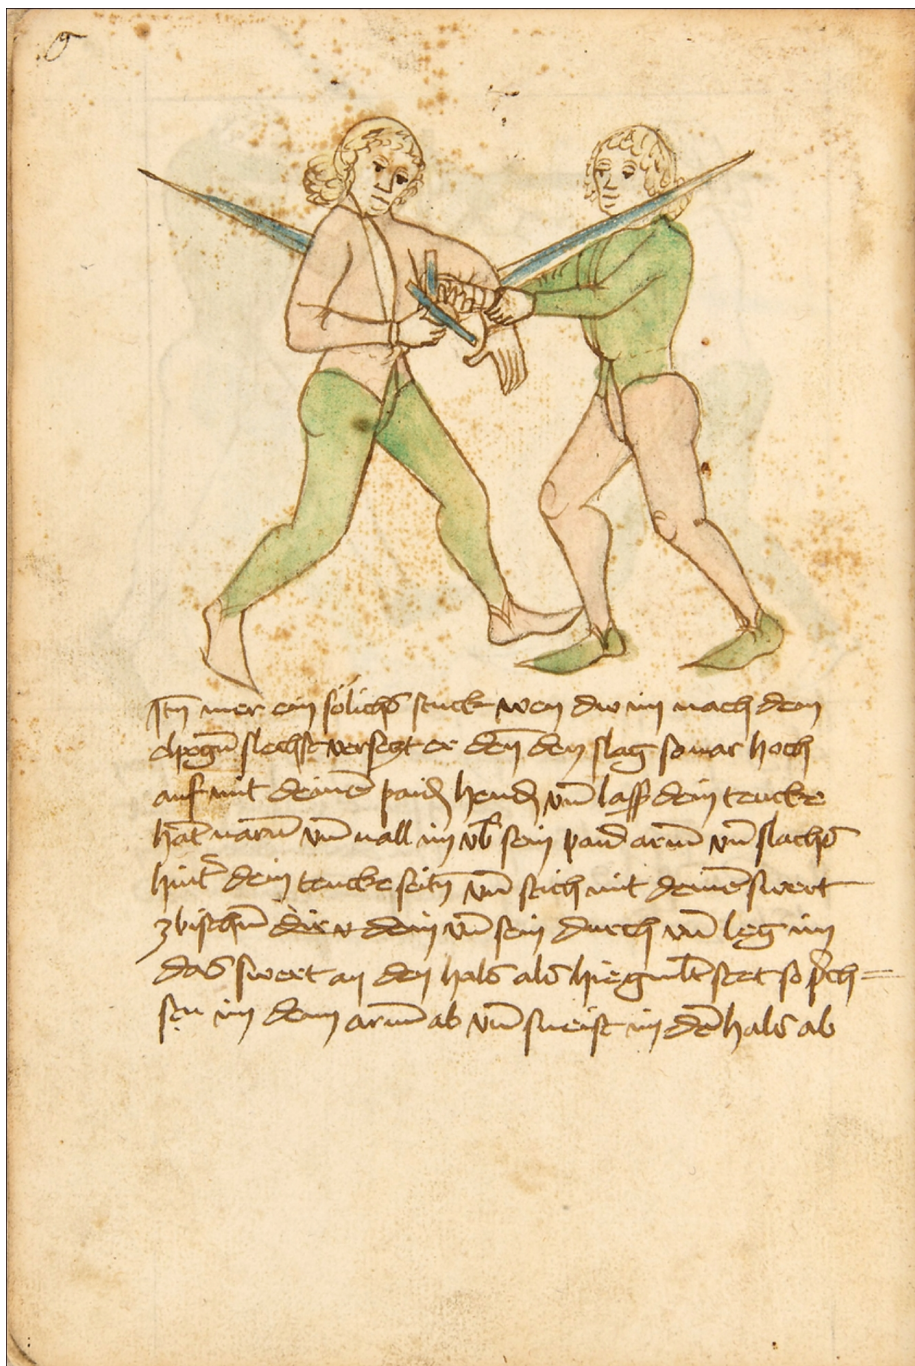 6
Itm mer ein sölichs stuck wen du im nach dem
slechst versetzt er den den slag so var hoch
auf mit deinē paidn hendn vn̄ lass dein tencke
hāt varn vn̄ vall im vb̄ sein paid arm vn̄ slachs
hint̄ dein tencke seitn vn̄ stich mit deinē swert
zbischn̄ dein vn̄ sein durch vn̄ leg im
das swert an den hals als hie gmalt stet so prich
im dem arm ab vn̄ sneist im dē hals ab